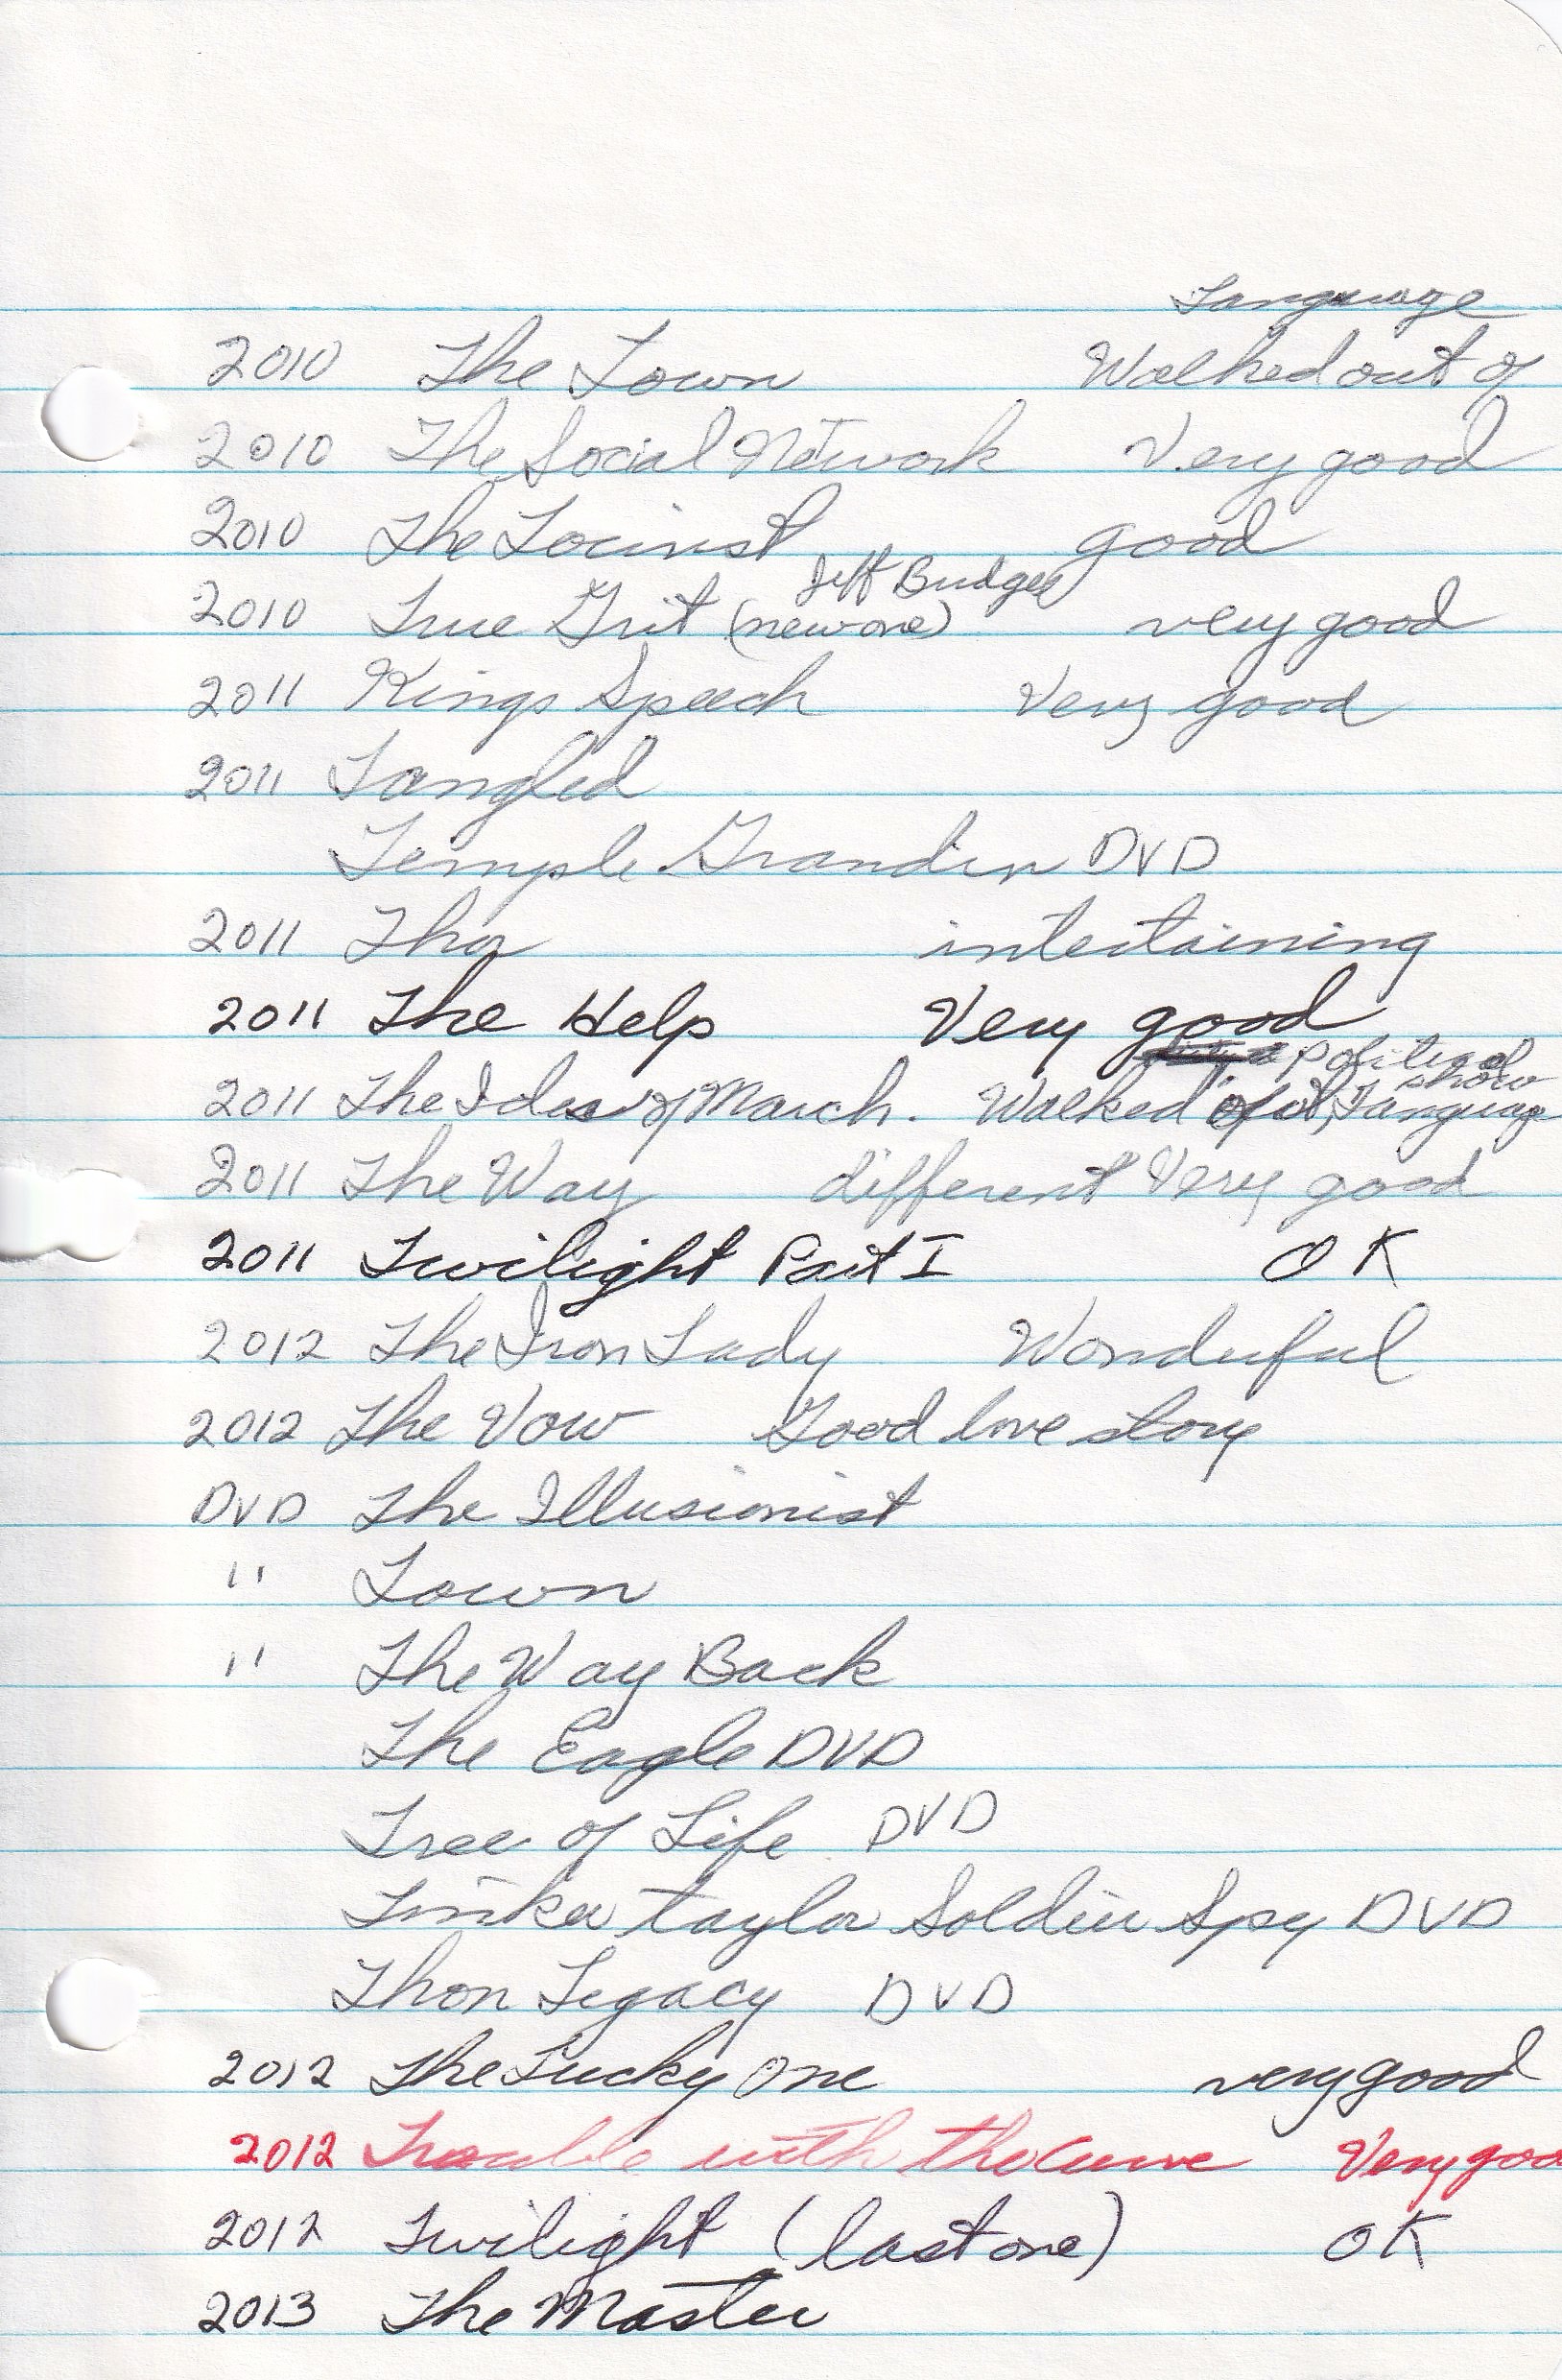 Language
2010 The Town Walked out of
2010 The Social Network Very good
2010 The Tourist good
Jeff Bridges
2010 True Grit (new one) very good
2011 Kings Speech Very good
2011 Tangled
Temple Grandin DVD
2011 Thor intertaining
2011 The Help Very good
political
show
2011 The Ides of March. Walked out, Language
2011 The Way different Very good
2011 Twilight Part I OK
2012 The Iron Lady Wonderful
2012 The Vow Good love story
DVD The Illusionist
" Town
" The Way Back
The Eagle DVD
Tree of Life DVD
Tinker taylor Soldier Spy DVD
Thon Legacy DVD
2012 The Lucky One very good
2012 Trouble with the Curve Very goo
2012 Twilight (last one) OK
2013 The Master